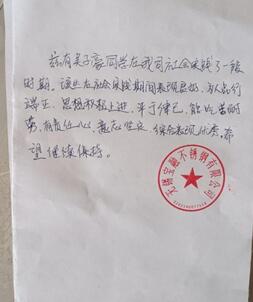 兹有吴子豪同学在我司社会实践了一段
时期。该生在社会实践期间表现良好,为人品行
端正,思想积极上进,严于律己,能吃苦耐
劳,有责任心,意志坚定,综合表现优秀,希
望继续保持。
无锡宝融不锈钢有限公司